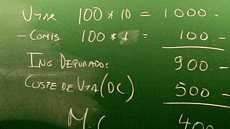 VTAS 100 * 10 = 1000.-
- COMIS. 100 * 1 = 100.-
ING DEPURADOS 900.-
COSTE DE VTA (DC) 500 -
M.C 400